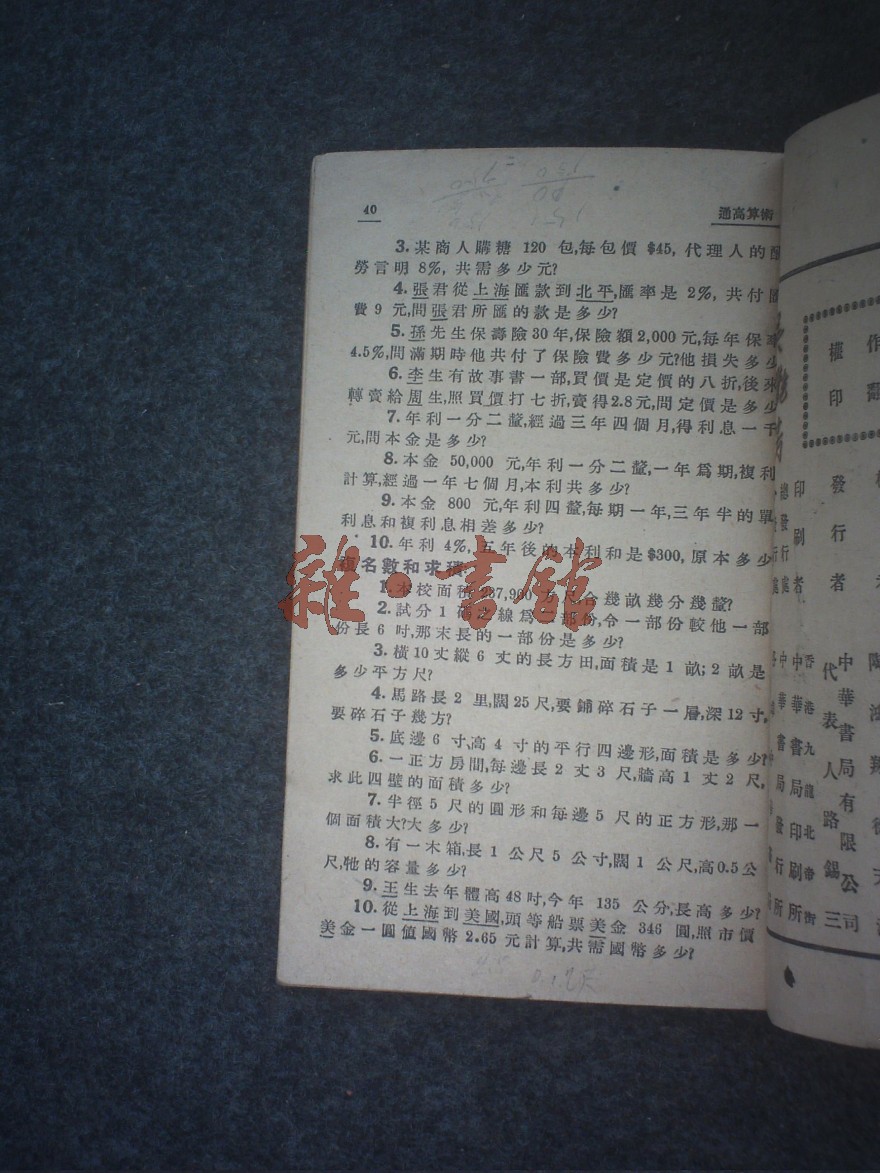 40
通高算術
3.某商人購糖 120 包,每包價 $45, 代理人的酬
勞言明 8%, 共需多少元?
4.張君從上海匯款到北平,匯率是 2%, 共付匯
費 9 元,問張君所匯的款是多少?
5.孫先生保壽險30年,保險額2,000元,每年保
4.5%,問滿期時他共付了保險費多少元?他損失多少
6.李生有故事書一部,買價是定價的八折,後來
轉賣給周生,照買價打七折,賣得2.8元,問定價是多少
7.年利一分二釐,經過三年四個月,得利息一千
元,問本金是多少?
8.本金 50,000 元,年利一分二釐,一年爲期,複利
計算,經過一年七個月,本利共多少?
9.本金 800 元,年利四釐,每期一年,三年半的單
利息和複利息相差多少?
10.年利 4%,五年後的本利和是$300, 原本多少
名數和求積
1.本校面積 方尺,合幾畝幾分幾釐?
2.試分 1 碼之線爲二部份,令一部份較他一部
份長 6 吋,那末長的一部份是多少?
3.橫10丈縱 6 丈的長方田,面積是 1 畝; 2 畝是
多少平方尺?
4.馬路長 2 里,闊25尺,要鋪碎石子一層,深12寸,
要碎石子幾方?
5.底邊 6 寸,高 4 寸的平行四邊形,面積是多少?
6.一正方房間,每邊長 2 丈 3 尺,牆高 1 丈 2 尺,
求此四壁的面積多少?
7.半徑 5 尺的圓形和每邊 5 尺的正方形,那一
個面積大?大多少?
8.有一木箱,長 1 公尺 5 公寸,闊 1 公尺,高0.5公
尺,牠的容量多少?
9.王生去年體高48吋,今年 135 公分,長高多少?
10.從上海到美國,頭等船票美金 346 圓,照市價
美金一圓值國幣 2.65 元計算,共需國幣多少?
雜·書館
作
權印
發行者
中華書局有限公司
代表人路錫三
印刷者
香港九龍北帝街
中華書局印刷所
總發行處
中華書局發行所